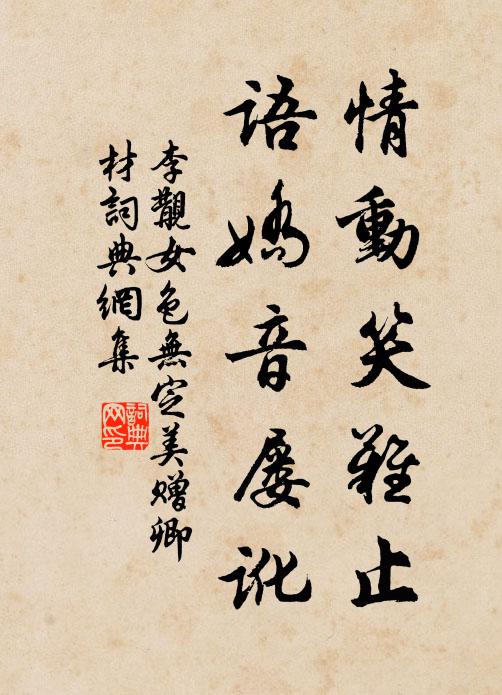 情動笑難止
語嬌音屢訛
李覯女色無定美贈卿
材詞典網集
詞典
网印